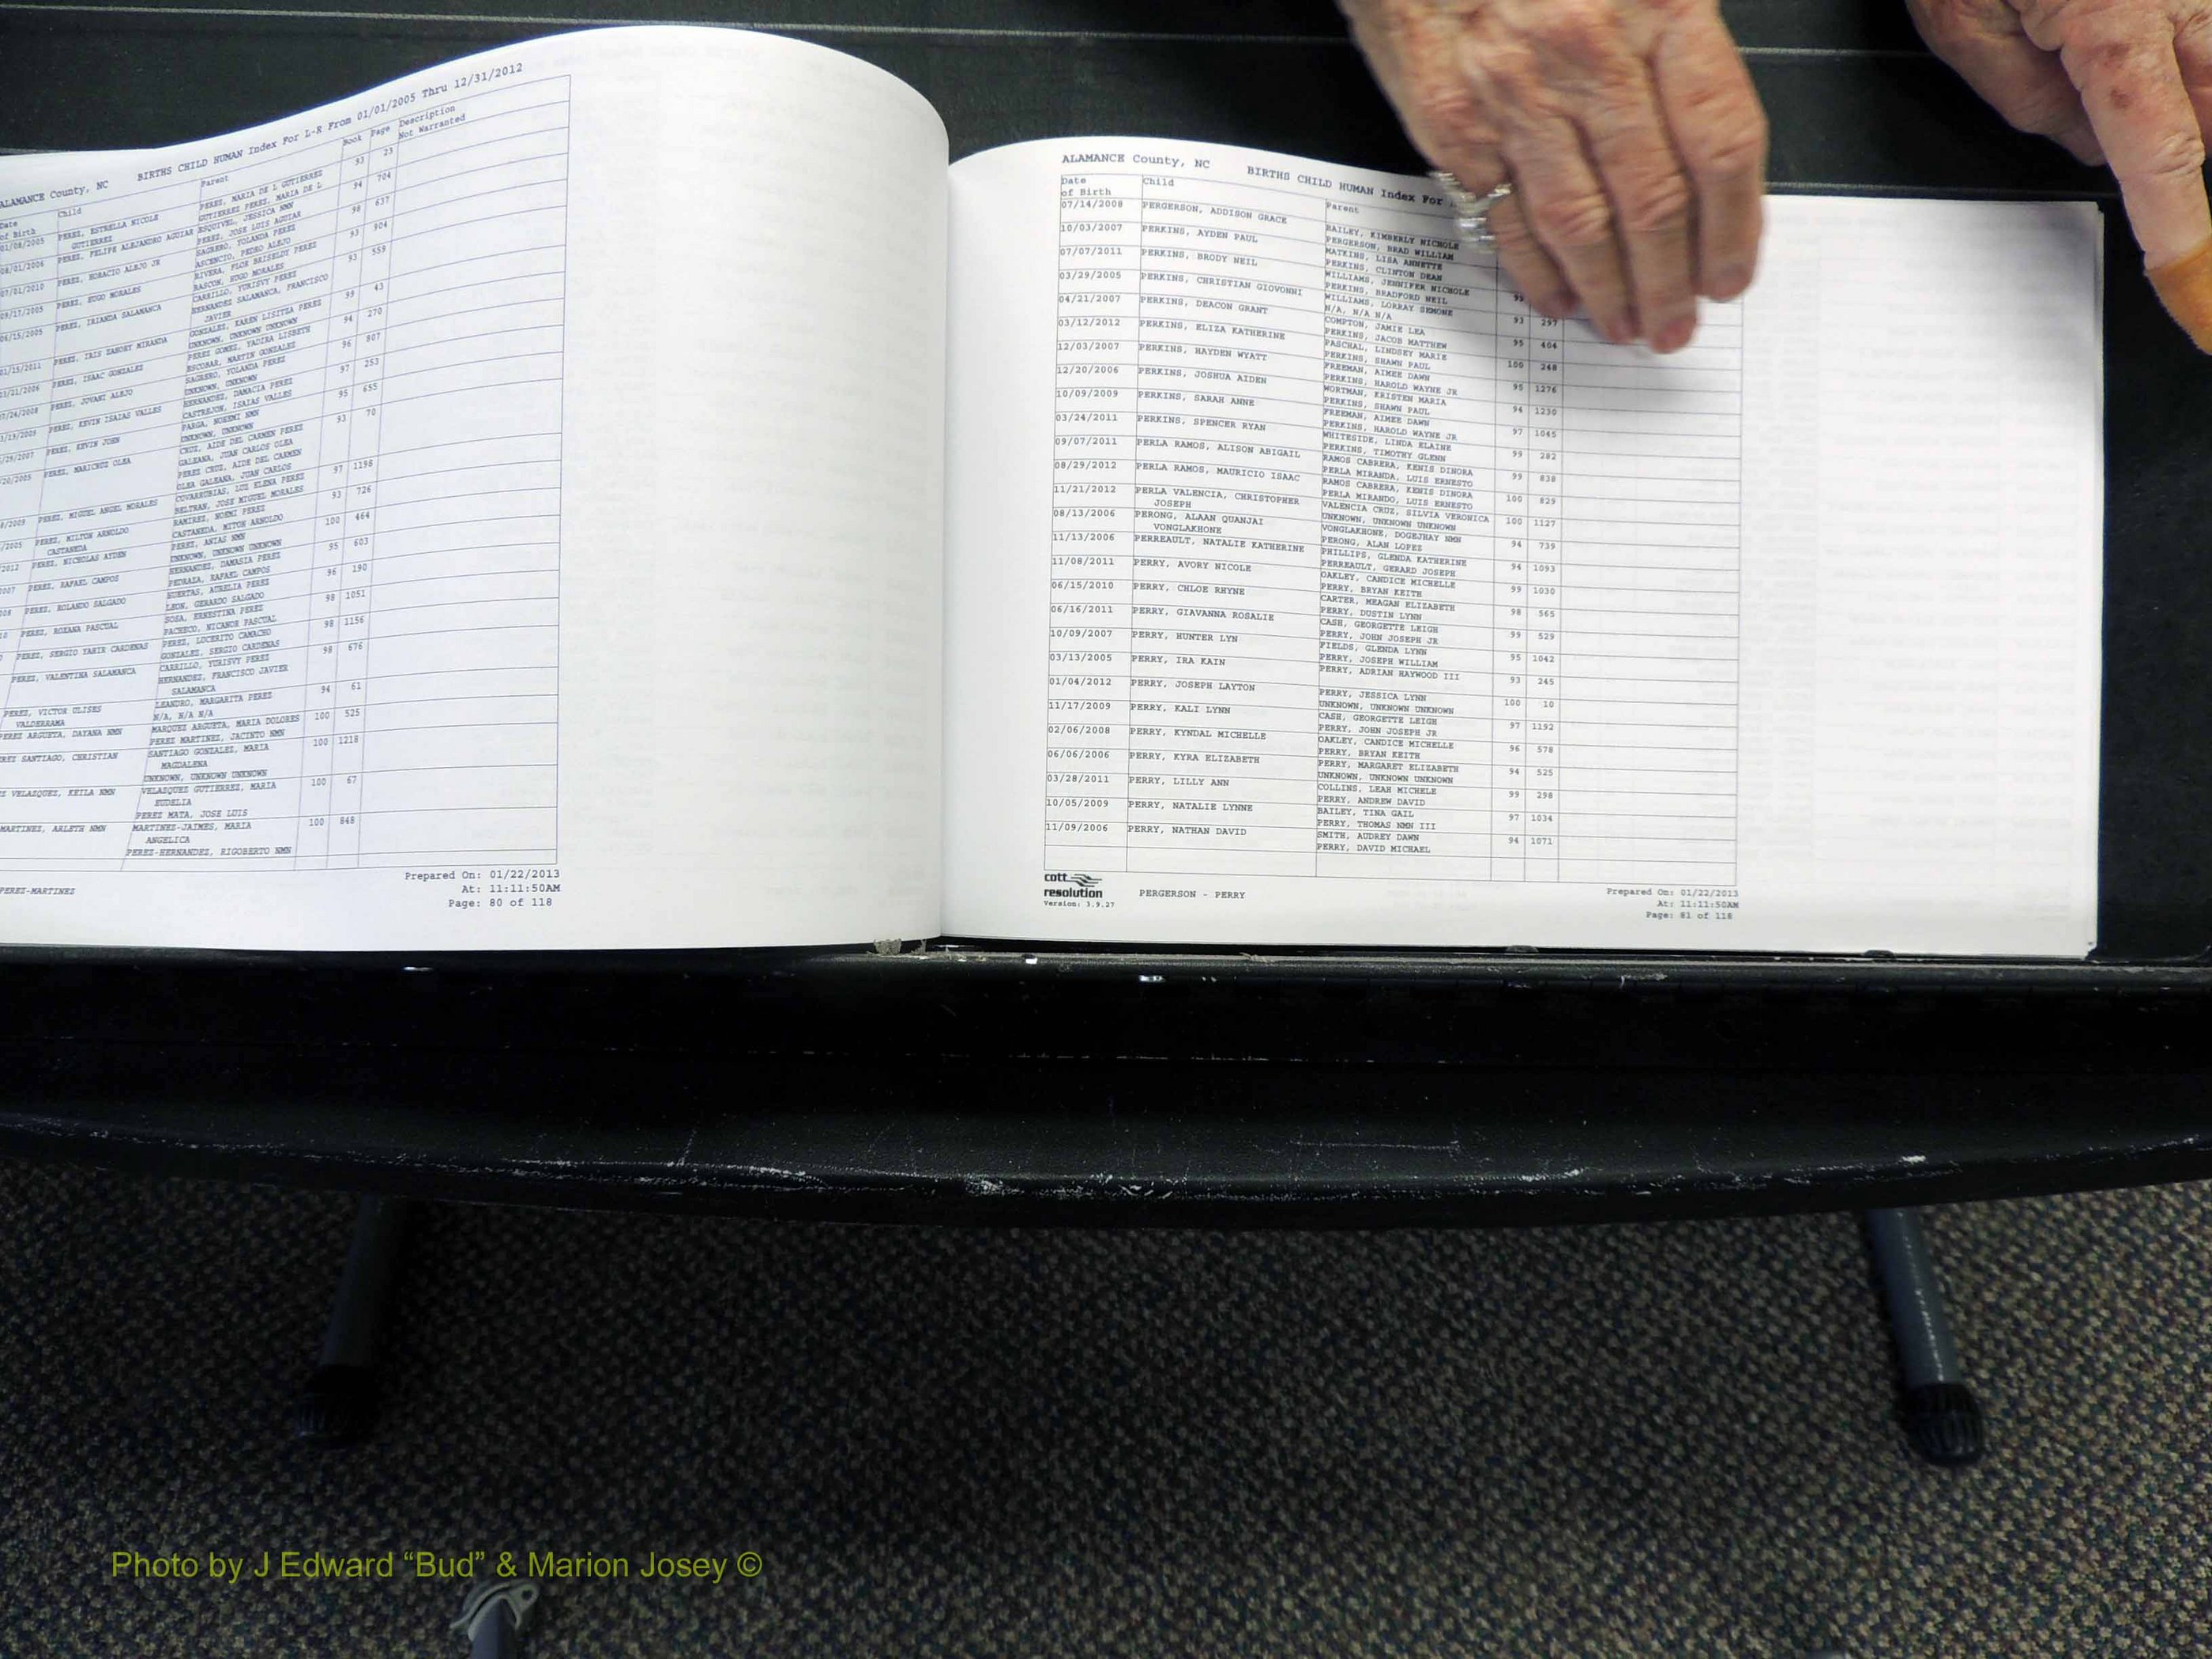 ALAMANCE County, NC BIRTHS CHILD HUMAN Index For L-R From 01/01/2005 Thru 12/31/2012
Date of Birth Child Parent Book Page Description
Not Warranted
01/08/2005 PEREZ, ESTRELLA NICOLE PEREZ, MARIA DE L GUTIERREZ 93 23
GUTIERREZ GUTIERREZ PEREZ, MARIA DE L
08/01/2006 PEREZ, FELIPE ALEJANDRO AGUIAR ESQUIVEL, JESSICA NMN 94 704
PEREZ, JOSE LUIS AGUIAR
07/01/2010 PEREZ, HORACIO ALEJO JR SAGRERO, YOLANDA PEREZ 98 637
ASCENCIO, PEDRO ALEJO
09/17/2005 PEREZ, HUGO MORALES RIVERA, FLOR BRISELDY PEREZ 93 904
RASCON, HUGO MORALES
06/15/2005 PEREZ, IRIANDA SALAMANCA CARRILLO, YURISVY PEREZ 93 559
HERNANDEZ SALAMANCA, FRANCISCO
JAVIER
01/15/2011 PEREZ, IRIS ZANOBY MIRANDA GONZALES, KAREN LISITZA PEREZ 99 43
UNKNOWN, UNKNOWN UNKNOWN
PEREZ, ISAAC GONZALEZ PEREZ GOMEZ, YADIRA LISBETH 94 270
ESCOBAR, MARTIN GONZALEZ
PEREZ, JOVANI ALEJO SAGRERO, YOLANDA PEREZ 96 807
UNKNOWN, UNKNOWN
PEREZ, KEVIN ISAIAS VALLES HERNANDEZ, DAMACIA PEREZ 97 253
CASTREJON, ISAIAS VALLES
PEREZ, KEVIN JOHN PARGA, NOHEMI NMN 95 655
UNKNOWN, UNKNOWN
PEREZ, MARICRUZ OLEA CRUZ, AIDE DEL CARMEN PEREZ 93 70
GALEANA, JUAN CARLOS OLEA
PEREZ CRUZ, AIDE DEL CARMEN
OLEA GALEANA, JUAN CARLOS
PEREZ, MIGUEL ANGEL MORALES COVARRUBIAS, LUZ ELENA PEREZ 97 1198
BELTRAN, JOSE MIGUEL MORALES
PEREZ, MILTON ARNOLDO RAMIREZ, NOEMI PEREZ 93 726
CASTANEDA CASTANEDA, MITON ARNOLDO
PEREZ, NICHOLAS AYDEN PEREZ, ANIAS NMN 100 464
UNKNOWN, UNKNOWN UNKNOWN
PEREZ, RAFAEL CAMPOS HERNANDEZ, DAMASIA PEREZ 95 603
PEDRAZA, RAFAEL CAMPOS
PEREZ, ROLANDO SALGADO HUERTAS, AURELIA PEREZ 96 190
LEON, GERARDO SALGADO
PEREZ, ROXANA PASCUAL SOSA, ERNESTINA PEREZ 98 1051
PACHECO, NICANOR PASCUAL
PEREZ, SERGIO YAHIR CARDENAS PEREZ, LUCERITO CAMACHO 98 1156
GONZALEZ, SERGIO CARDENAS
PEREZ, VALENTINA SALAMANCA CARRILLO, YURISVY PEREZ 98 676
HERNANDEZ, FRANCISCO JAVIER
SALAMANCA
PEREZ, VICTOR ULISES LEANDRO, MARGARITA PEREZ 94 61
VALDERRAMA N/A, N/A N/A
PEREZ ARGUETA, DAYANA NMN MARQUEZ ARGUETA, MARIA DOLORES 100 525
PEREZ MARTINEZ, JACINTO NMN
SANTIAGO, CHRISTIAN SANTIAGO GONZALEZ, MARIA 100 1218
MAGDALENA
UNKNOWN, UNKNOWN UNKNOWN
VELAZQUEZ, KEILA NMN VELAZQUEZ GUTIERREZ, MARIA 100 67
EUDELIA
PEREZ MATA, JOSE LUIS
MARTINEZ, ARLETH NMN MARTINEZ-JAIMES, MARIA 100 848
ANGELICA
PEREZ-HERNANDEZ, RIGOBERTO NMN
PEREZ-MARTINEZ
Prepared On: 01/22/2013
At: 11:11:50AM
Page: 80 of 118
ALAMANCE County, NC BIRTHS CHILD HUMAN Index For
Date of Birth Child Parent
07/14/2008 PERGERSON, ADDISON GRACE BAILEY, KIMBERLY NICHOLE
PERGERSON, BRAD WILLIAM
10/03/2007 PERKINS, AYDEN PAUL MATKINS, LISA ANNETTE
PERKINS, CLINTON DEAN
07/07/2011 PERKINS, BRODY NEIL WILLIAMS, JENNIFER NICHOLE 99
PERKINS, BRADFORD NEIL
03/29/2005 PERKINS, CHRISTIAN GIOVONNI WILLIAMS, LORRAY SEMONE 93 297
N/A, N/A N/A
04/21/2007 PERKINS, DEACON GRANT COMPTON, JAMIE LEA 95 404
PERKINS, JACOB MATTHEW
03/12/2012 PERKINS, ELIZA KATHERINE PASCHAL, LINDSEY MARIE 100 248
PERKINS, SHAWN PAUL
12/03/2007 PERKINS, HAYDEN WYATT FREEMAN, AIMEE DAWN 95 1276
PERKINS, HAROLD WAYNE JR
12/20/2006 PERKINS, JOSHUA AIDEN WORTMAN, KRISTEN MARIA 94 1230
PERKINS, SHAWN PAUL
10/09/2009 PERKINS, SARAH ANNE FREEMAN, AIMEE DAWN 97 1045
PERKINS, HAROLD WAYNE JR
03/24/2011 PERKINS, SPENCER RYAN WHITESIDE, LINDA ELAINE 99 282
PERKINS, TIMOTHY GLENN
09/07/2011 PERLA RAMOS, ALISON ABIGAIL RAMOS CABRERA, KENIS DINORA 99 838
PERLA MIRANDA, LUIS ERNESTO
08/29/2012 PERLA RAMOS, MAURICIO ISAAC RAMOS CABRERA, KENIS DINORA 100 829
PERLA MIRANDO, LUIS ERNESTO
11/21/2012 PERLA VALENCIA, CHRISTOPHER VALENCIA CRUZ, SILVIA VERONICA 100 1127
JOSEPH UNKNOWN, UNKNOWN UNKNOWN
08/13/2006 PERONG, ALAAN QUANJAI VONGLAKHONE, DOGEJHAY NMN 94 739
VONGLAKHONE PERONG, ALAN LOPEZ
11/13/2006 PERREAULT, NATALIE KATHERINE PHILLIPS, GLENDA KATHERINE 94 1093
PERREAULT, GERARD JOSEPH
11/08/2011 PERRY, AVORY NICOLE OAKLEY, CANDICE MICHELLE 99 1030
PERRY, BRYAN KEITH
06/15/2010 PERRY, CHLOE RHYNE CARTER, MEAGAN ELIZABETH 98 565
PERRY, DUSTIN LYNN
06/16/2011 PERRY, GIAVANNA ROSALIE CASH, GEORGETTE LEIGH 99 529
PERRY, JOHN JOSEPH JR
10/09/2007 PERRY, HUNTER LYN FIELDS, GLENDA LYNN 95 1042
PERRY, JOSEPH WILLIAM
03/13/2005 PERRY, IRA KAIN PERRY, ADRIAN HAYWOOD III 93 245
01/04/2012 PERRY, JOSEPH LAYTON PERRY, JESSICA LYNN 100 10
UNKNOWN, UNKNOWN UNKNOWN
11/17/2009 PERRY, KALI LYNN CASH, GEORGETTE LEIGH 97 1192
PERRY, JOHN JOSEPH JR
02/06/2008 PERRY, KYNDAL MICHELLE OAKLEY, CANDICE MICHELLE 96 578
PERRY, BRYAN KEITH
06/06/2006 PERRY, KYRA ELIZABETH PERRY, MARGARET ELIZABETH 94 525
UNKNOWN, UNKNOWN UNKNOWN
03/28/2011 PERRY, LILLY ANN COLLINS, LEAH MICHELE 99 298
PERRY, ANDREW DAVID
10/05/2009 PERRY, NATALIE LYNNE BAILEY, TINA GAIL 97 1034
PERRY, THOMAS NMN III
11/09/2006 PERRY, NATHAN DAVID SMITH, AUDREY DAWN 94 1071
PERRY, DAVID MICHAEL
cott
resolution
Version: 3.9.27
PERGERSON - PERRY
Prepared On: 01/22/2013
At: 11:11:50AM
Page: 81 of 118
Photo by J Edward “Bud” & Marion Josey ©